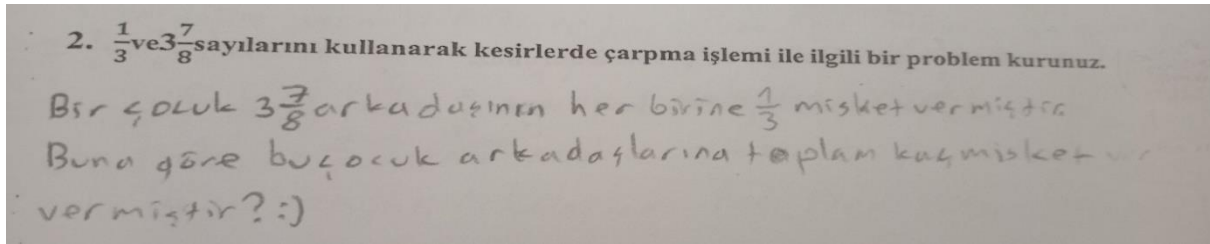 2. 1/3 ve 3 7/8 sayılarını kullanarak kesirlerde çarpma işlemi ile ilgili bir problem kurunuz.
Bir çocuk 3 7/8 arkadaşının her birine 1/3 misket vermiştir.
Buna göre bu çocuk arkadaşlarına toplam kaç misket
vermiştir? :)